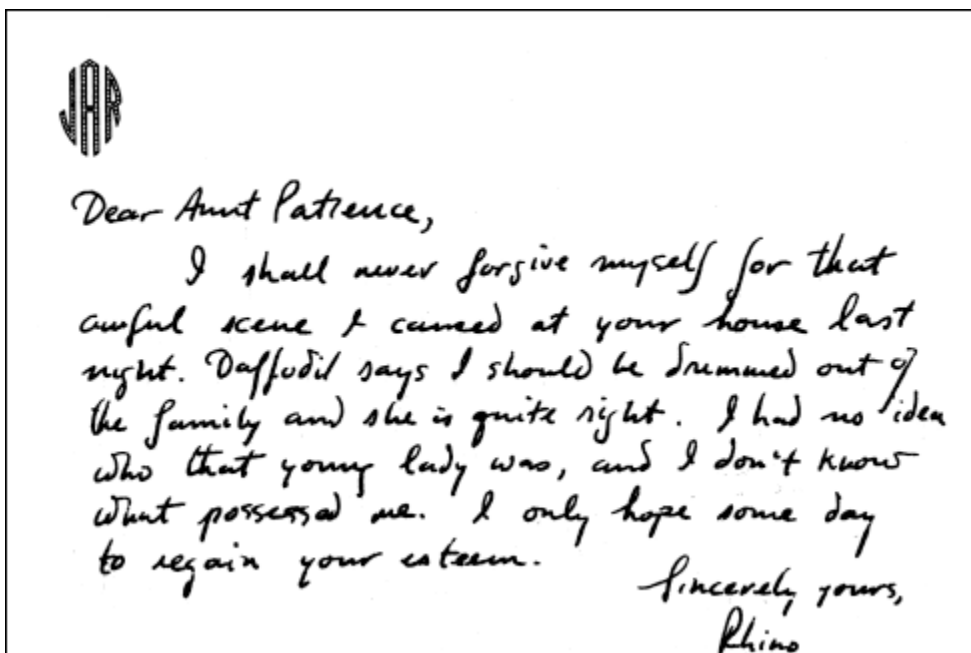 JAR
Dear Aunt Patience,
I shall never forgive myself for that
awful scene I caused at your house last
night. Daffodil says I should be drummed out of
the family and she is quite right. I had no idea
who that young lady was, and I don't know
what possessed me. I only hope some day
to regain your esteem.
Sincerely yours,
Rhino